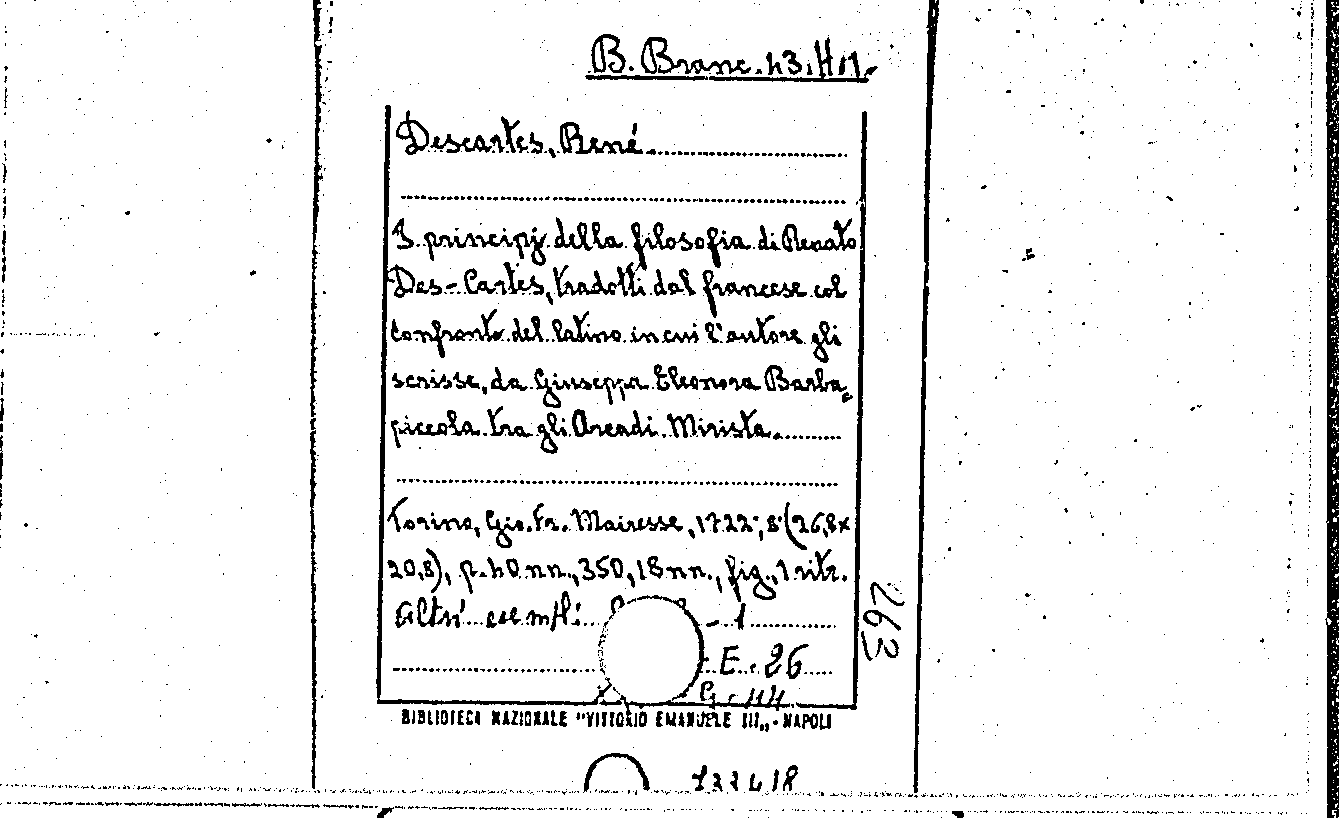 B. Branc. 43. H 17.
Descartes, René.
I principj della filosofia di Renato
Des-Cartes, tradotti dal francese col
confronto del latino in cui l'autore gli
scrisse, da Giuseppa Eleonora Barba-
piccola tra gli Arcadi Mirista.
Torino, Gio. Fr. Mairesse, 1722; 8° (26,8x
20,8), p. 40 nn., 350, 18 nn., fig., 1 ritr.
Altri esempl: - 1
E. 26
G. 44
BIBLIOTECA NAZIONALE "VITTORIO EMANUELE III„ - NAPOLI
263